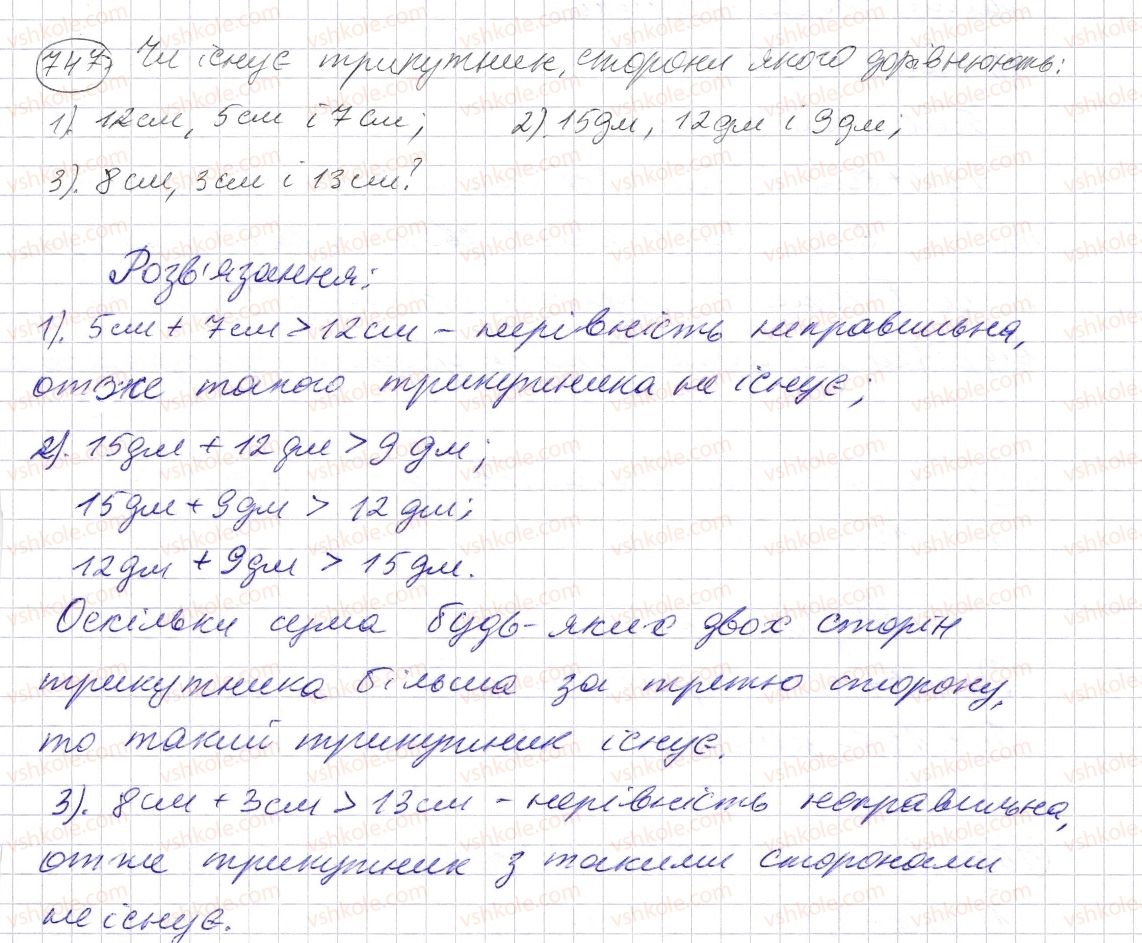 747 Чи існує трикутник, сторони якого дорівнюють:
1). 12см, 5см і 7см; 2). 15дм, 12дм і 9дм;
3). 8см, 3см і 13см?
Розв'язання:
1). 5см + 7см > 12см - нерівність неправильна,
отже такого трикутника не існує;
2). 15дм + 12дм > 9дм;
15дм + 9дм > 12дм;
12дм + 9дм > 15дм.
Оскільки сума будь-яких двох сторін
трикутника більша за третю сторону,
то такий трикутник існує.
3). 8см + 3см > 13см - нерівність неправильна,
отже трикутник з такими сторонами
не існує.